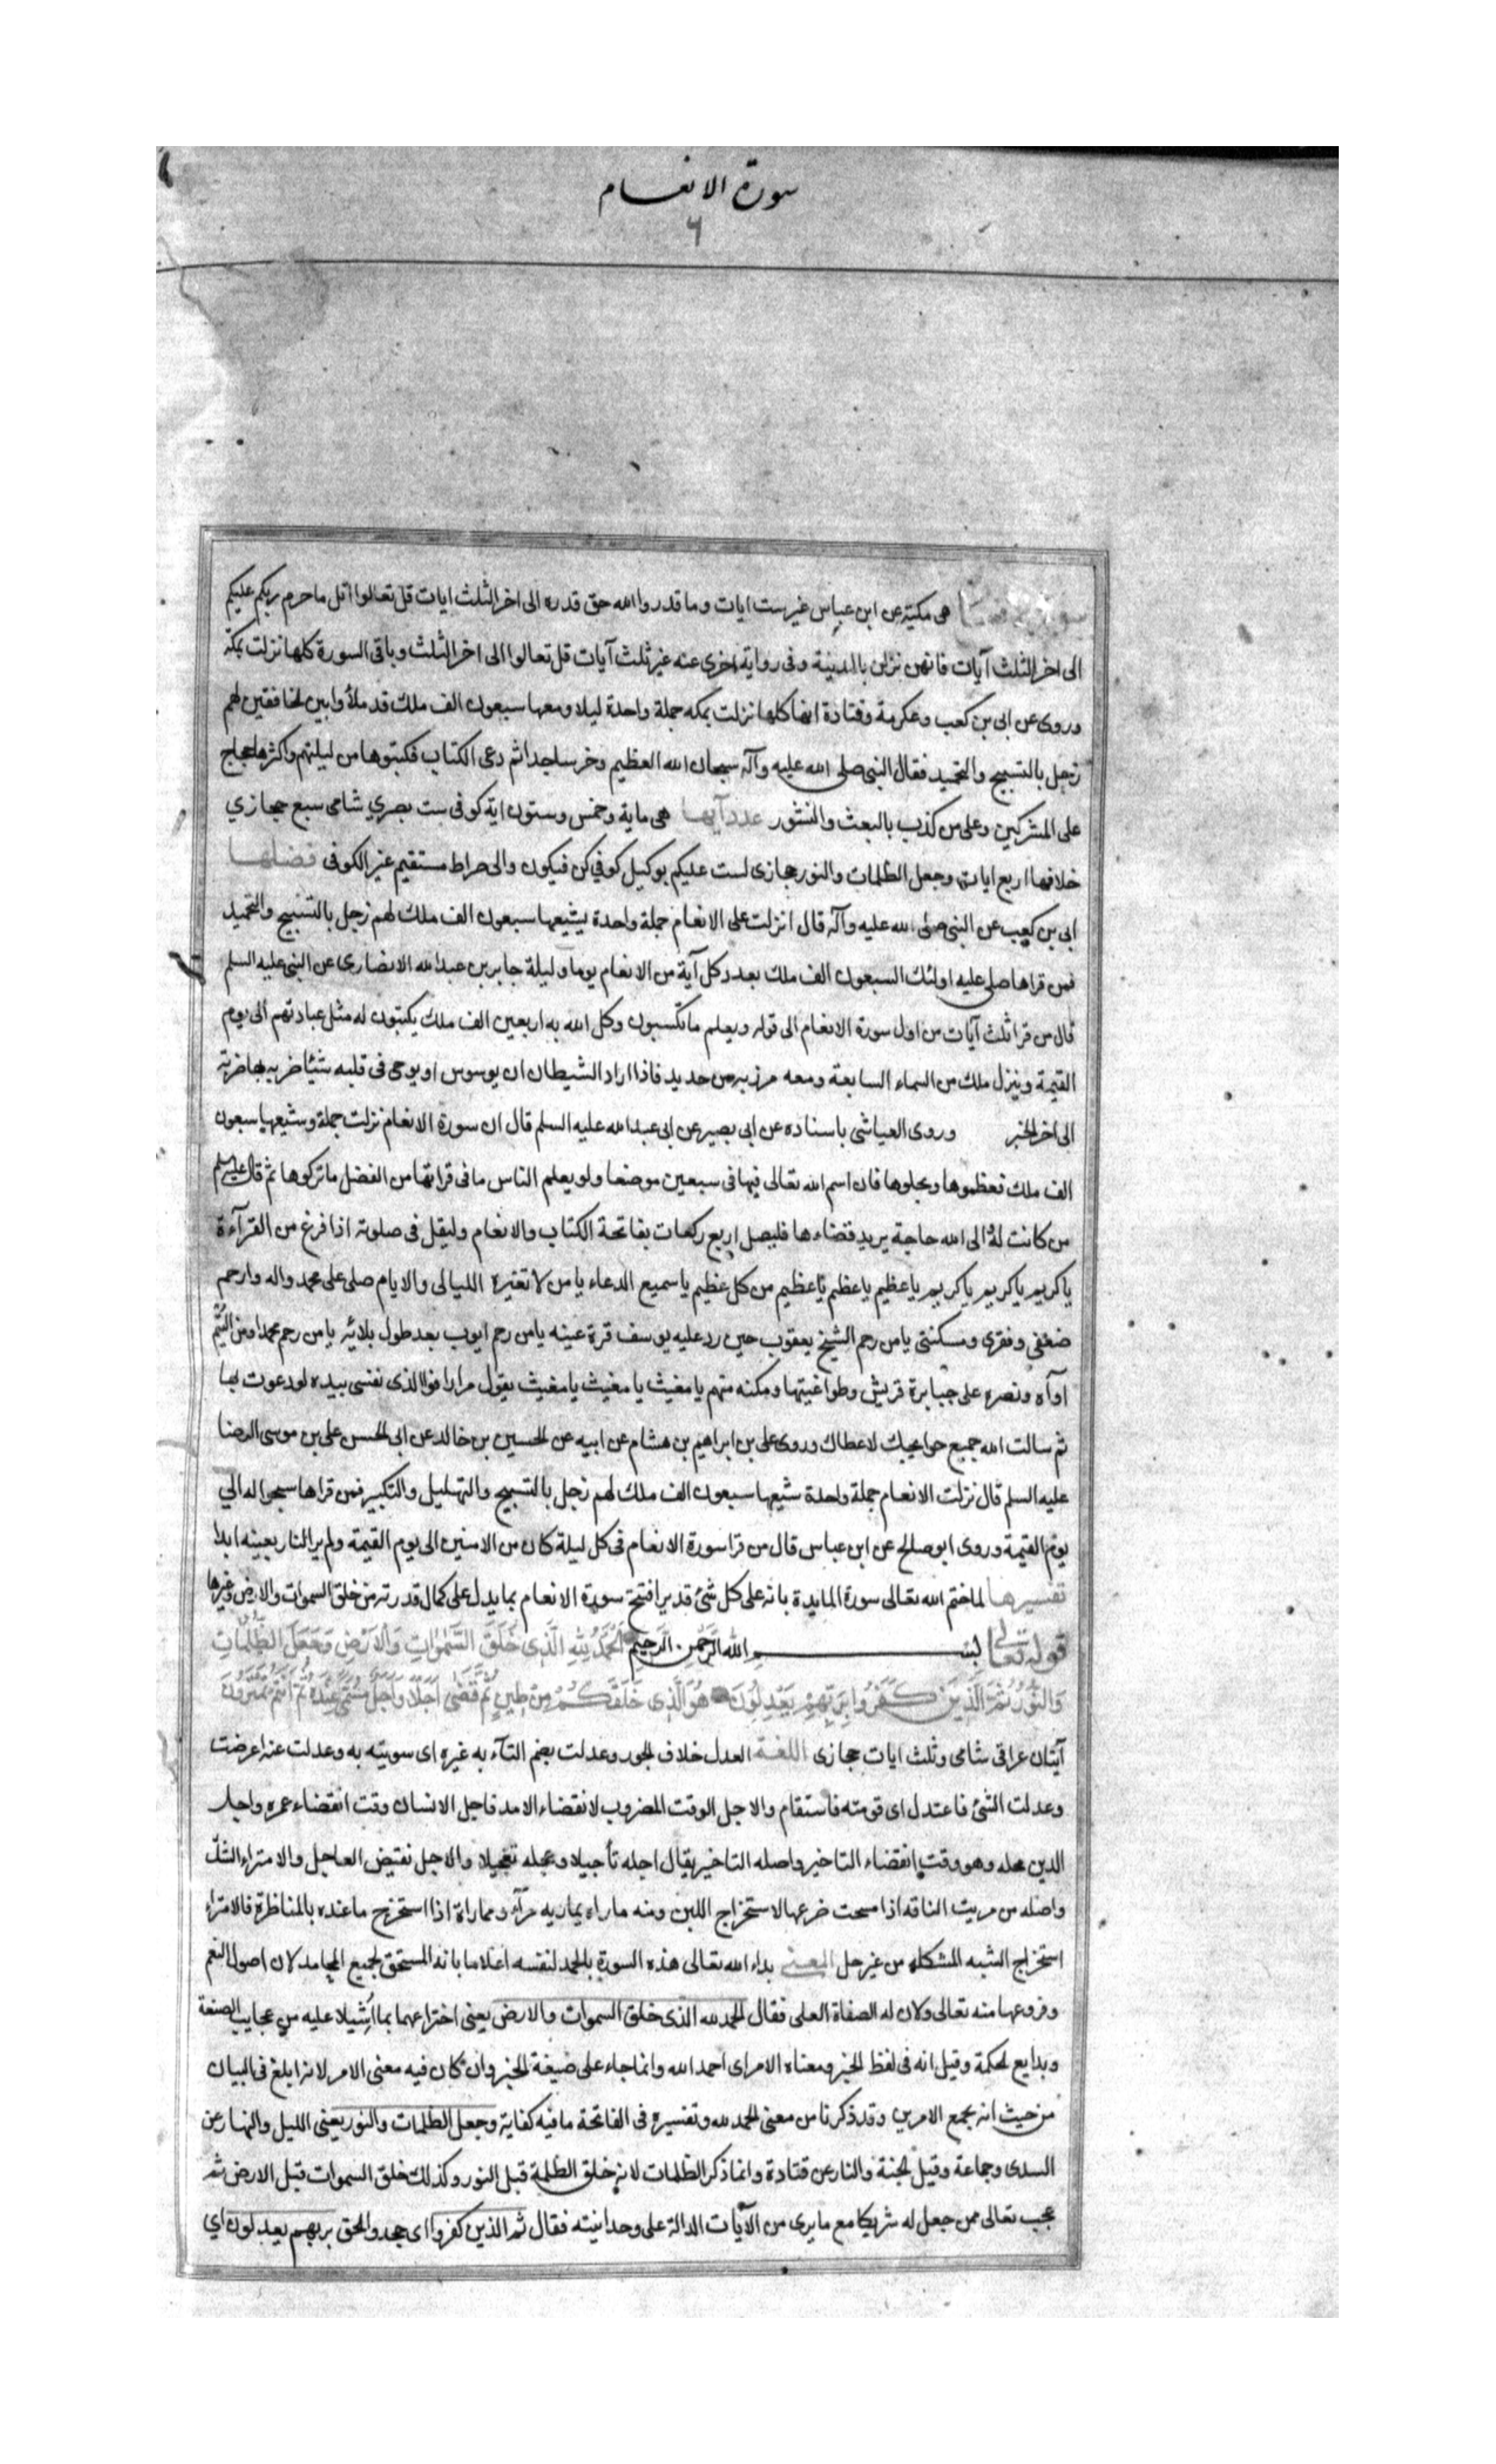 سورة الانعام
٦
هى مكية عن ابن عباس غير ست ايات وما قدروا الله حق قدره الى اخر الثلث ايات قل تعالوا اتل ما حرم ربكم عليكم
الى اخر الثلث آيات فانهن نزلن بالمدينة وفى رواية اخرى عنه غير ثلث آيات قل تعالوا الى اخر الثلث وباقى السورة كلها نزلت بمكة
وروى عن ابى بن كعب وعكرمة وقتادة انها كلها نزلت بمكه جملة واحدة ليلا ومعها سبعون الف ملك قد ملأوا بين الخافقين لهم
زجل بالتسبيح والتحميد فقال النبى صلى الله عليه وآله سبحان الله العظيم وخر ساجدا ثم دعى الكتاب فكتبوها من ليلتهم واكثرها حجاج
على المشركين وعلى من كذب بالبعث والنشور عدد آيها هى ماية وخمس وستون اية كوفى ست بصري شامى سبع حجازي
خلافها اربع ايات وجعل الظلمات والنور حجازى لست عليكم بوكيل كوفي كن فيكون والى صراط مستقيم غير الكوفى فضلها
ابى بن كعب عن النبى صلى الله عليه وآله قال انزلت على الانعام جملة واحدة يشيعها سبعون الف ملك لهم زجل بالتسبيح والتحميد
فمن قراها صلى عليه اولئك السبعون الف ملك بعدد كل آية من الانعام يوما وليلة جابر بن عبدالله الانصارى عن النبى عليه السلم
قال من قرا ثلث آيات من اول سورة الانعام الى قوله ويعلم ما تكسبون وكل الله به اربعين الف ملك يكتبون له مثل عبادتهم الى يوم
القيمة وينزل ملك من السماء السابعة ومعه مرزبه من حديد فاذا اراد الشيطان ان يوسوس او يوحى فى قلبه شيئا ضربه بها ضربة
الى اخر الخبر وروى العياشى باسناده عن ابى بصير عن ابى عبدالله عليه السلم قال ان سورة الانعام نزلت جملة وشيعها سبعون
الف ملك فعظموها وبجلوها فان اسم الله تعالى فيها فى سبعين موضعا ولو يعلم الناس ما فى قراتها من الفضل ما تركوها ثم قال عليه السلم
من كانت له الى الله حاجة يريد قضاءها فليصل اربع ركعات بفاتحة الكتاب والانعام وليقل فى صلوته اذا فرغ من القرآءة
يا كريم يا كريم يا كريم يا عظيم يا عظيم يا عظيم من كل عظيم يا سميع الدعاء يا من لا تغيره الليالى والايام صلى على محمد واله وارحم
ضعفى وفقرى ومسكنتى يا من رحم الشيخ يعقوب حين رد عليه يوسف قرة عينه يا من رحم ايوب بعد طول بلائه يا من رحم محمدا ومن اليتم
اوآه ونصره على جبابرة قريش وطواغيتها ومكنه منهم يا مغيث يا مغيث يا مغيث يقول مرارا فوالذى نفسى بيده لو دعوت بها
ثم سالت الله جميع حوايجك لاعطاك وروى على بن ابراهيم بن هشام عن ابيه عن الحسين بن خالد عن ابى الحسن على بن موسى الرضا
عليه السلم قال نزلت الانعام جملة واحدة شيعها سبعون الف ملك لهم زجل بالتسبيح والتهليل والتكبير فمن قراها سبحوا له الي
يوم القيمة وروى ابو صالح عن ابن عباس قال من قرا سورة الانعام فى كل ليلة كان من الامنين الى يوم القيمة ولم ير النار بعينه ابدا
تفسيرها لما ختم الله تعالى سورة المايدة بانه على كل شئ قدير افتتح سورة الانعام بما يدل على كمال قدرته من خلق السموات والارض وغيرها
قوله تعالى بسم الله الرحمن الرحيم الْحَمْدُ لِلّهِ الَّذِى خَلَقَ السَّمٰوَاتِ وَالْاَرْضِ وَجَعَلَ الظُّلُمَاتِ
وَالنُّورَ ثُمَّ الَّذِينَ كَفَرُوا بِرَبِّهِمْ يَعْدِلُونَ هُوَ الَّذِى خَلَقَكُمْ مِنْ طِينٍ ثُمَّ قَضٰى اَجَلًا وَاَجَلٌ مُسَمًّى عِنْدَهُ ثُمَّ اَنْتُمْ تَمْتَرُونَ
آيتان عراقى شامى وثلث ايات حجازى اللغة العدل خلاف الجور وعدلت بضم التآء به غيره اى سويته به وعدلت عنه اعرضت
وعدلت الشئ فاعتدل اى قومته فاستقام والاجل الوقت المضروب لانقضاء الامد فاجل الانسان وقت انقضاء عمره واجل
الدين محله وهو وقت انقضاء التاخير واصله التاخير يقال اجله تأجيلا وعجله تعجيلا والاجل نقيض العاجل والامتراء الشك
واصله من مريت الناقه اذا مسحت ضرعها لاستخراج اللبن ومنه ماراه يماريه مرآء ومماراة اذا استخرج ما عنده بالمناظرة فالامتراء
استخراج الشبه المشكله من غير حل المعنى بداء الله تعالى هذه السورة بالحمد لنفسه اعلاما بانه المستحق لجميع المحامد لان اصول النعم
وفروعها منه تعالى ولان له الصفاة العلى فقال الحمد لله الذى خلق السموات والارض يعنى اخترعهما بما اشتملا عليه من عجايب الصنعة
وبدايع الحكمة وقيل انه فى لفظ الخبر ومعناه الامر اى احمد الله وانما جاء على صيغة الخبر وان كان فيه معنى الامر لانه ابلغ فى البيان
من حيث انه يجمع الامرين وقد ذكرنا من معنى الحمد لله وتفسيره فى الفاتحة ما فيه كفاية وجعل الظلمات والنور يعنى الليل والنهار عن
السدى وجماعة وقيل الجنة والنار عن قتادة وانما ذكر الظلمات لانه خلق الظلمة قبل النور وكذلك خلق السموات قبل الارض ثم
عجب تعالى ممن جعل له شريكا مع ما يرى من الآيات الدالة على وحدانيته فقال ثم الذين كفروا اى جحدوا الحق بربهم يعدلون اي